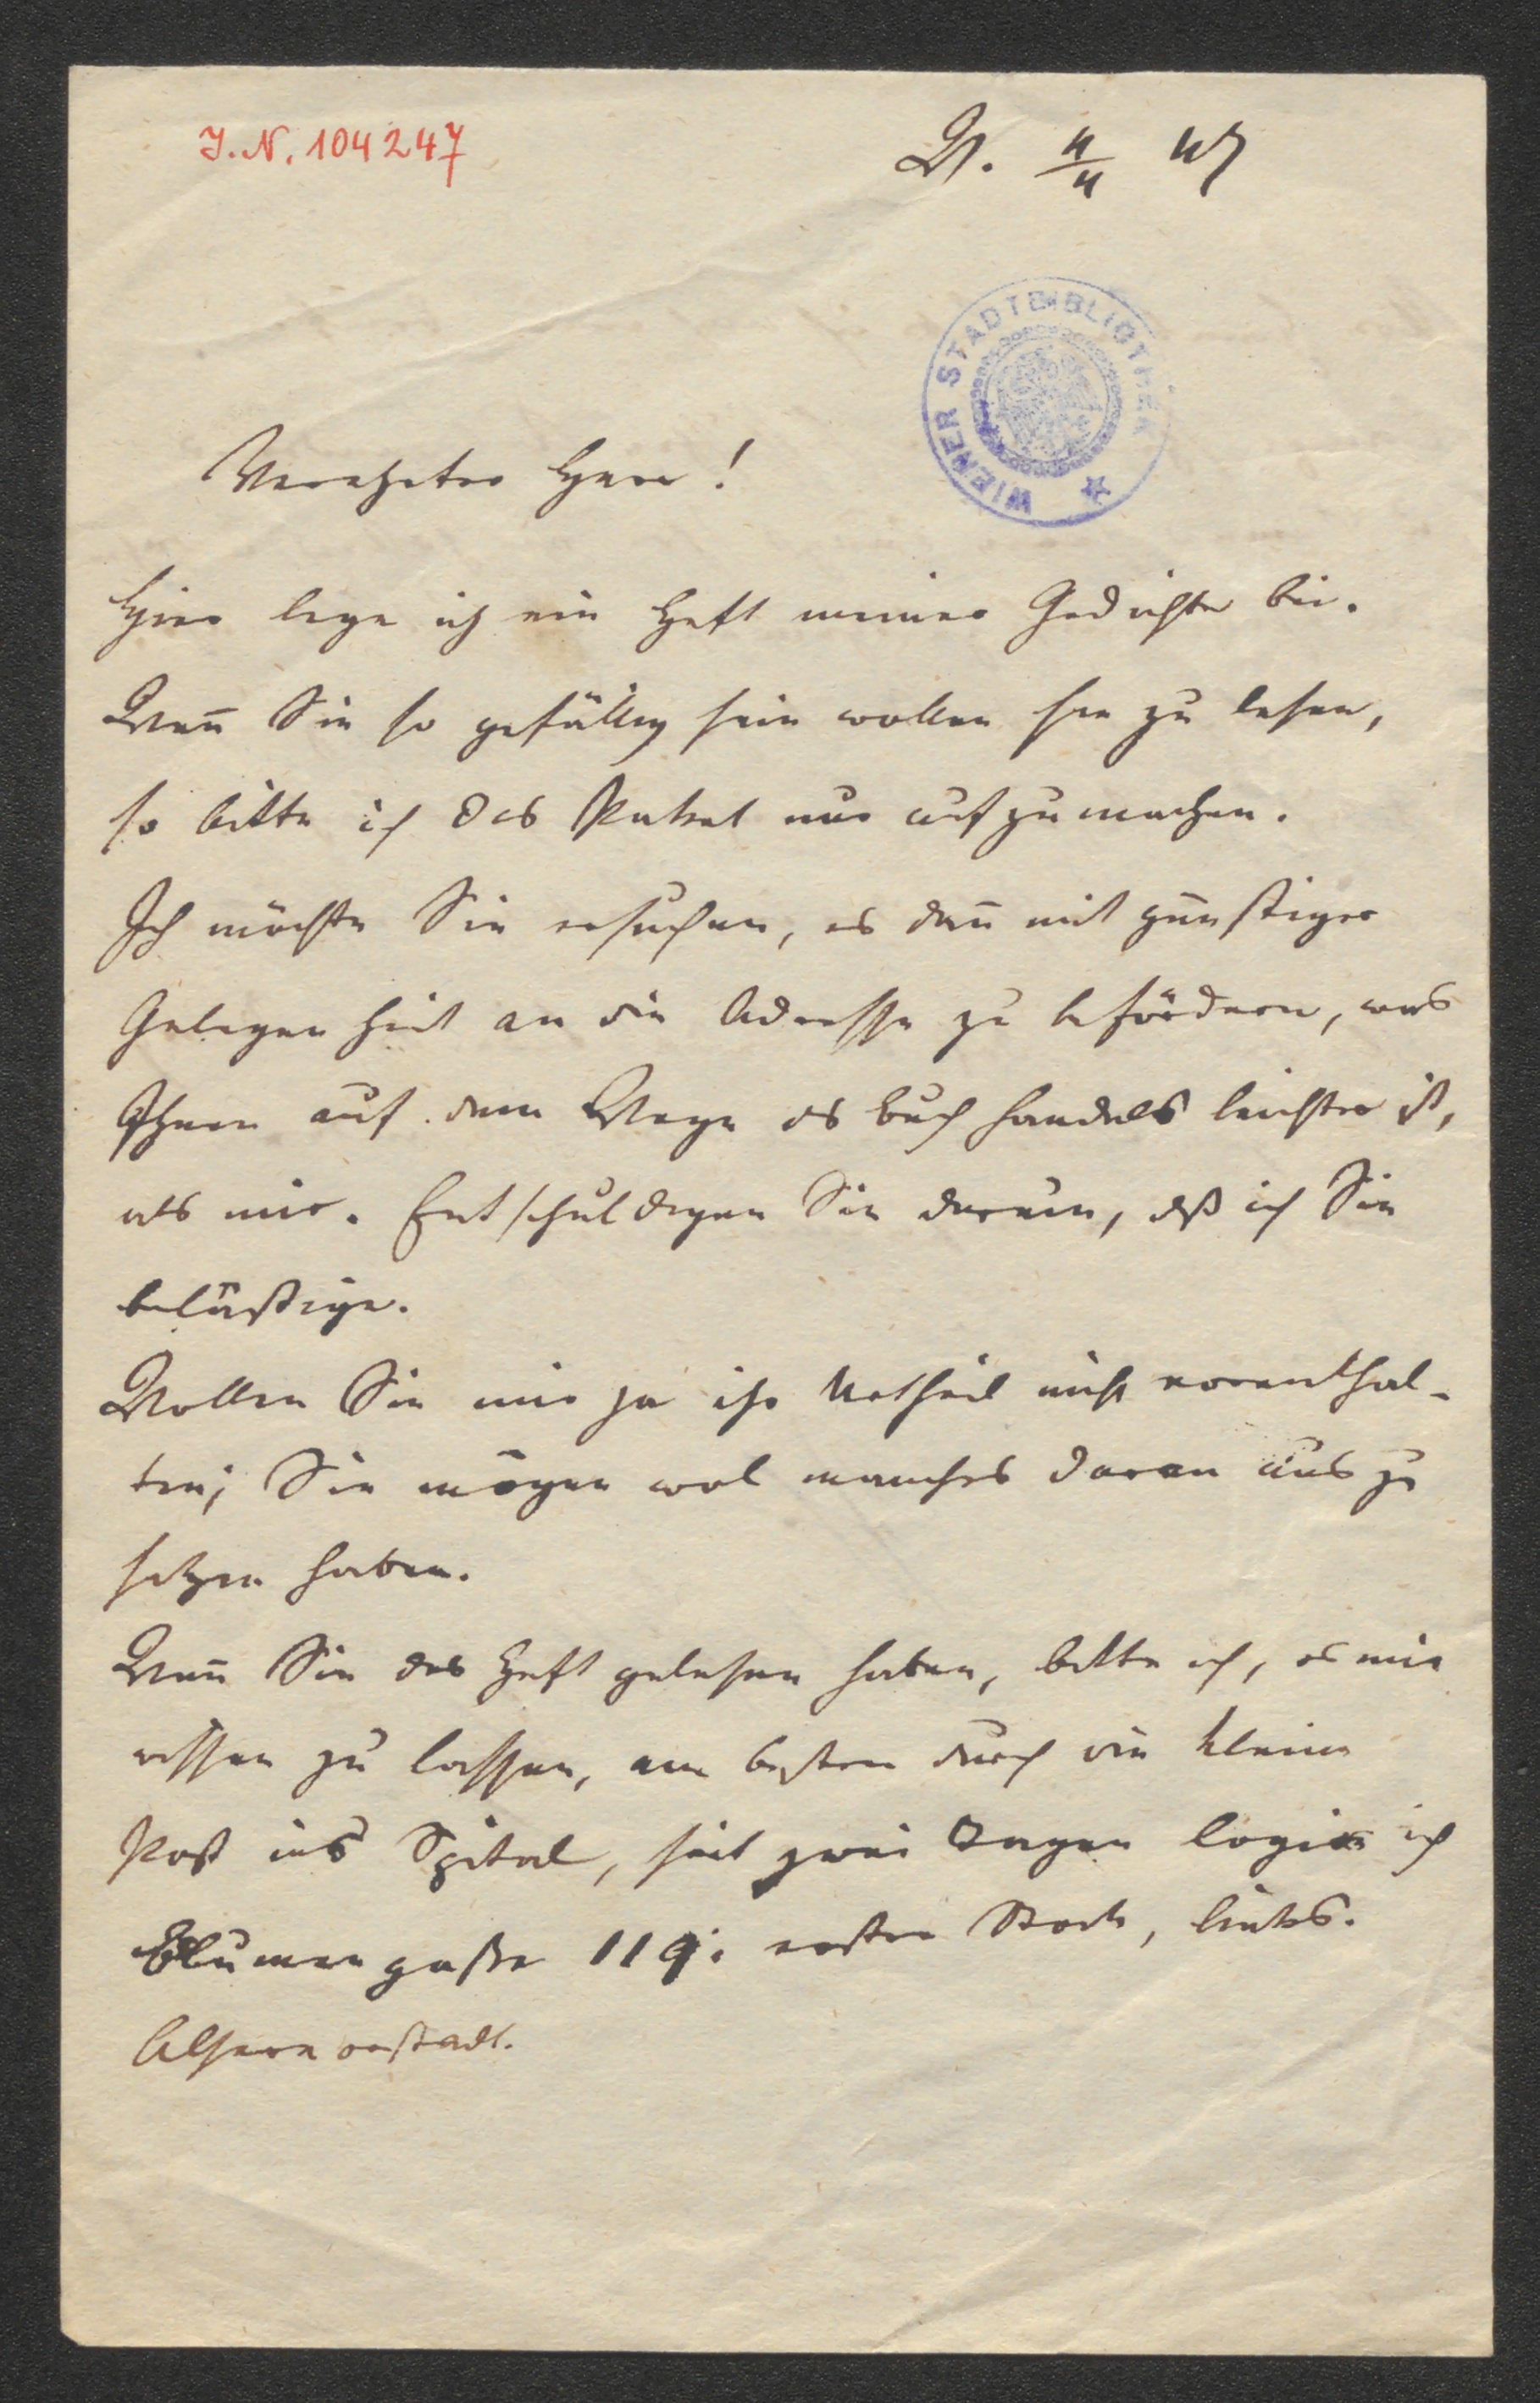 J. N. 104247
W. 4/4 47
WIENER STADTBIBLIOTHEK
Verehrter Herr!
Hier lege ich ein Heft meiner Gedichte bei.
Wen̄ Sie so gefällig sein wollen sie zu lesen,
so bitte ich das Paket nur aufzumachen.
Ich möchte Sie ersuchen, es dan̄ mit günstiger
Gelegenheit an die Adresse zu befördern, was
Ihnen auf dem Wege des Buchhandels leichter ist,
als mir. Entschuldigen Sie darum, daß ich Sie
belästige.
Wollen Sie mir ja ihr Urtheil nicht vorenthal-
ten; Sie mögen wol manches daran aus zu
setzen haben.
Wen̄ Sie das Heft gelesen haben, bitte ich, es mir
wissen zu lassen, am besten durch die kleine
Post ins Spital, seit zwei Tagen logire ich
Blumengasse 119. ersten Stock, links.
Alservorstadt.